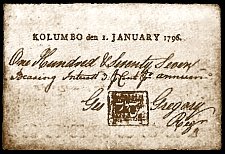 KOLUMBO den 1. JANUARY 1796.
One Hundred & Seventy Seven
Bearing Intrest 3 P Cent Pr annum
Geo Gregory